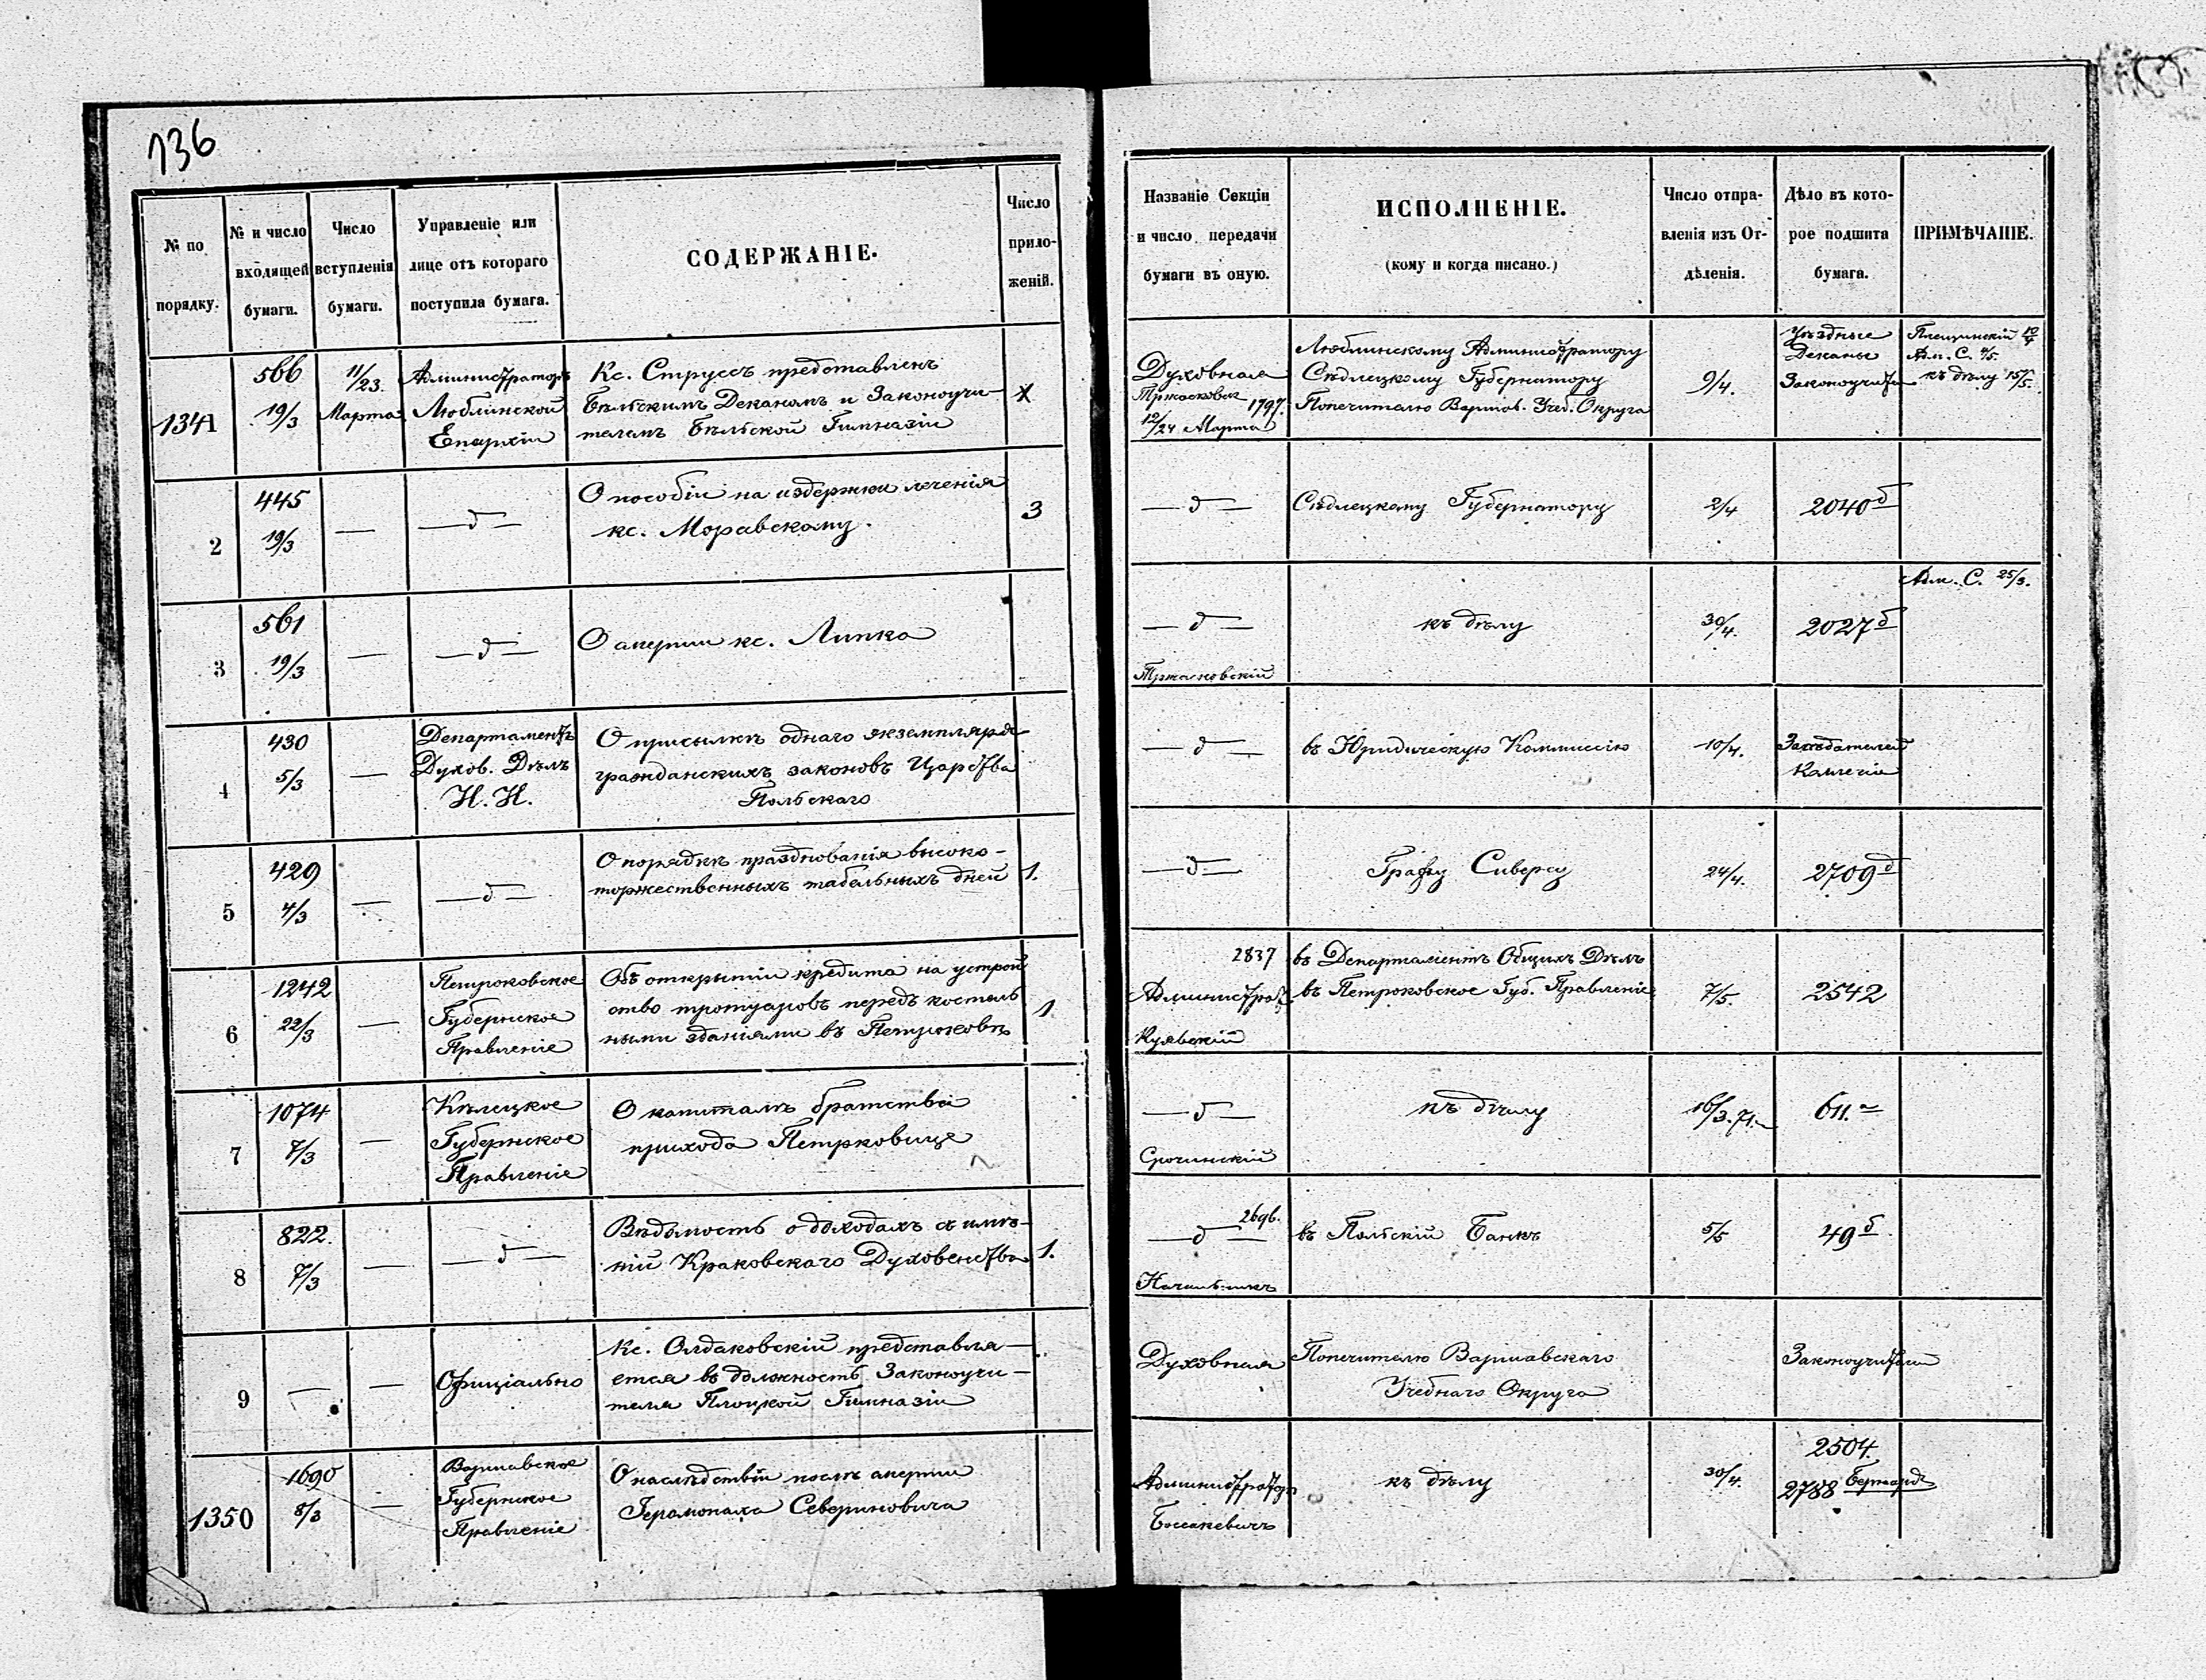 136
№ по порядку.
№ и число входящей бумаги.
Число вступленія бумаги.
Управленіе или лице отъ котораго поступила бумага.
СОДЕРЖАНІЕ.
Число приложеній.
Названіе Секціи и число передачи бумаги въ оную.
ИСПОЛНЕНІЕ.
(кому и когда писано.)
Число отправленія изъ Отдѣленія.
Дѣло въ которое подшита бумага.
ПРИМѢЧАНІЕ.
1341
566
19/3
11/23.
Марта
Администраторъ
Люблинской
Епархіи
Кс. Струссъ представленъ
Бѣльскимъ Деканомъ и Законоучи-
телемъ Бѣльской Гимназіи
x
Духовная
1797.
12/24 Марта
Люблинскому Администратору
Сѣдлецкому Губернатору
Попечителю Варшав. Учеб. Округа
9/4.
Уѣздные
Деканы
Законоучители
Адм. С.
къ дѣлу 15/5.
2
445
19/3
—
—д—
О пособіи на издержки леченія
кс. Моравскому.
3
—д—
Сѣдлецкому Губернатору
2/4
2040 б
3
561
19/3
—
—д—
О смерти кс. Липка
—д—
Тржасковскій
къ дѣлу
30/4.
2027 б
Адм. С. 25/3.
4
430
5/3
—
Департаментъ
Духов. Дѣлъ
И. И.
О присылкѣ однаго экземпляра
гражданскихъ законовъ Царства
Польскаго
—д—
въ Юридическую Коммиссію
10/4.
5
429
4/3
—
—д—
О порядкѣ празднованія высоко-
торжественныхъ табельныхъ дней
1.
—д—
Графу Сиверсу
24/4.
2709 д
6
1242
22/3
—
Петроковское
Губернское
Правленіе
Объ открытіи кредита на устрой
ство тротуаровъ передъ костель
ными зданіями въ Петроковѣ
1
2837
Администрат.
Куявскій
въ Департаментъ Общихъ Дѣлъ
въ Петроковское Губ. Правленіе
7/5.
2542
7
1074
7/3
—
Кѣлецкое
Губернское
Правленіе
О капиталѣ братства
прихода Петрковице
—д—
Срочинскій
къ дѣлу
16/3.71.
611. а
8
822.
7/3
—
—д—
Вѣдомость о доходахъ съ имѣ-
ній Краковскаго Духовенства
1.
2696.
—д—
Начальникъ
въ Польскій Банкъ
5/5
49 б
9
—
—
Офиціально
Кс. Олдаковскій представля-
ется въ должность Законоучи-
теля Плоцкой Гимназіи
Духовная
Попечителю Варшавскаго
Учебнаго Округа
Законоучители
1350
1690
8/3
—
Варшавское
Губернское
Правленіе
О наслѣдствіи послѣ смерти
Іеромонаха Севериновича
Администратор
къ дѣлу
30/4.
2504.
2788